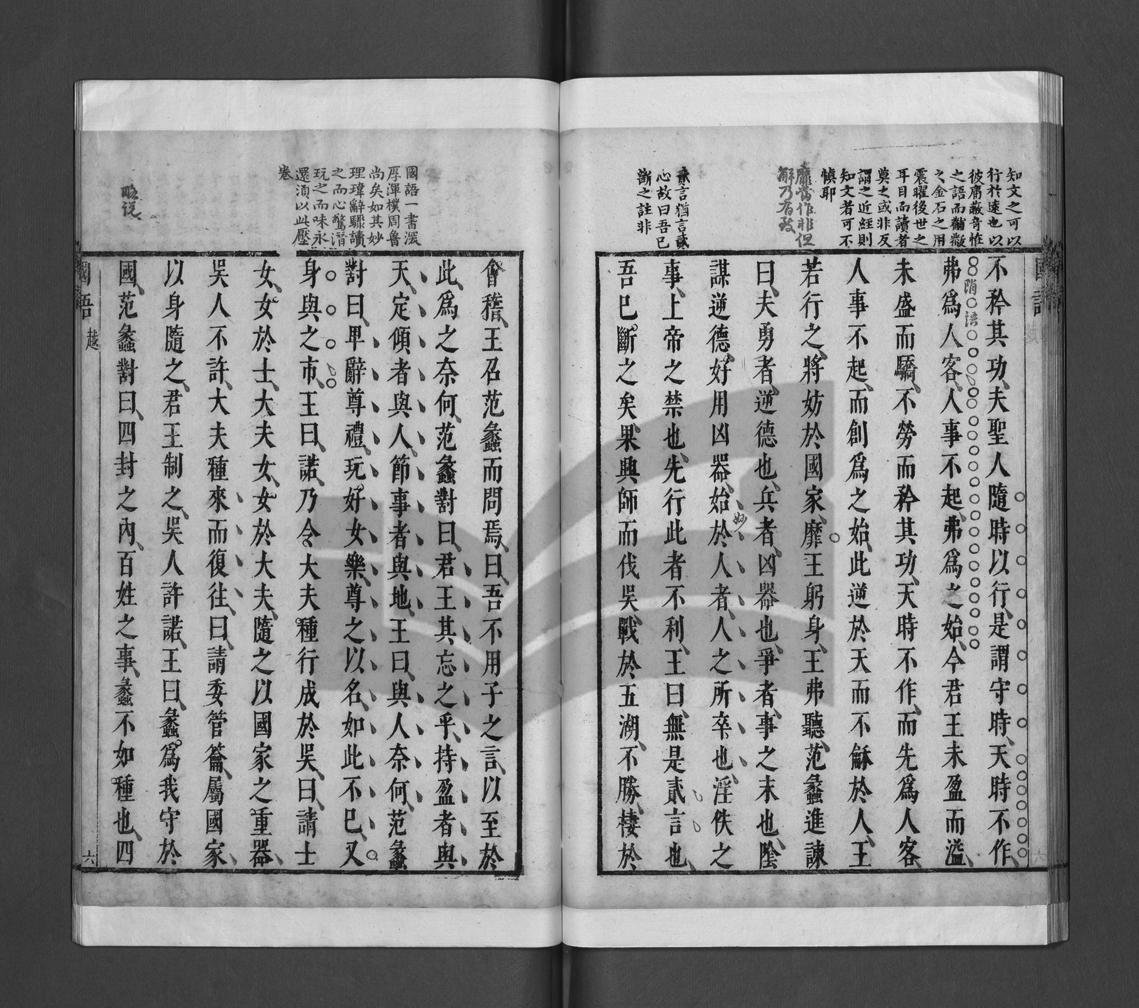 知文之可以
行於遠也以
彼膚蔽奇恠
之語而獨擬
之金石之用
震曜後世之
耳目而讀者
莫之或非反
謂之近經則
知文者可不
慎耶
靡當作非但
解乃有致
貳言猶言貳
心故曰吾已
斷之註非
國語
不矜其功夫聖人隨時以行是謂守時天時不作
弗爲人客人事不起弗爲之始今君王未盈而溢
未盛而驕不勞而矜其功天時不作而先爲人客
人事不起而創爲之始此逆於天而不龢於人王
若行之將妨於國家靡王躬身王弗聽范蠡進諫
曰夫勇者逆德也兵者凶器也爭者事之末也陰
謀逆德好用凶器始於人者人之所卒也淫佚之
妙
事上帝之禁也先行此者不利王曰無是貳言也
吾已斷之矣果興師而伐吳戰於五湖不勝棲於
國語一書深
厚渾樸周魯
尚矣如其妙
理瑋辭驟讀
之而心驚潛
玩之而味永
還須以此壓
卷
會稽王召范蠡而問焉曰吾不用子之言以至於
此爲之奈何范蠡對曰君王其忘之乎持盈者與
天定傾者與人節事者與地王曰與人奈何范蠡
對曰卑辭尊禮玩好女樂尊之以名如此不已又
身與之市王曰諾乃令大夫種行成於吳曰請士
女女於士大夫女女於大夫隨之以國家之重器
吳人不許大夫種來而復往曰請委管籥屬國家
以身隨之君王制之吳人許諾王曰蠡爲我守於
國范蠡對曰四封之內百姓之事蠡不如種也四
國語
越
六